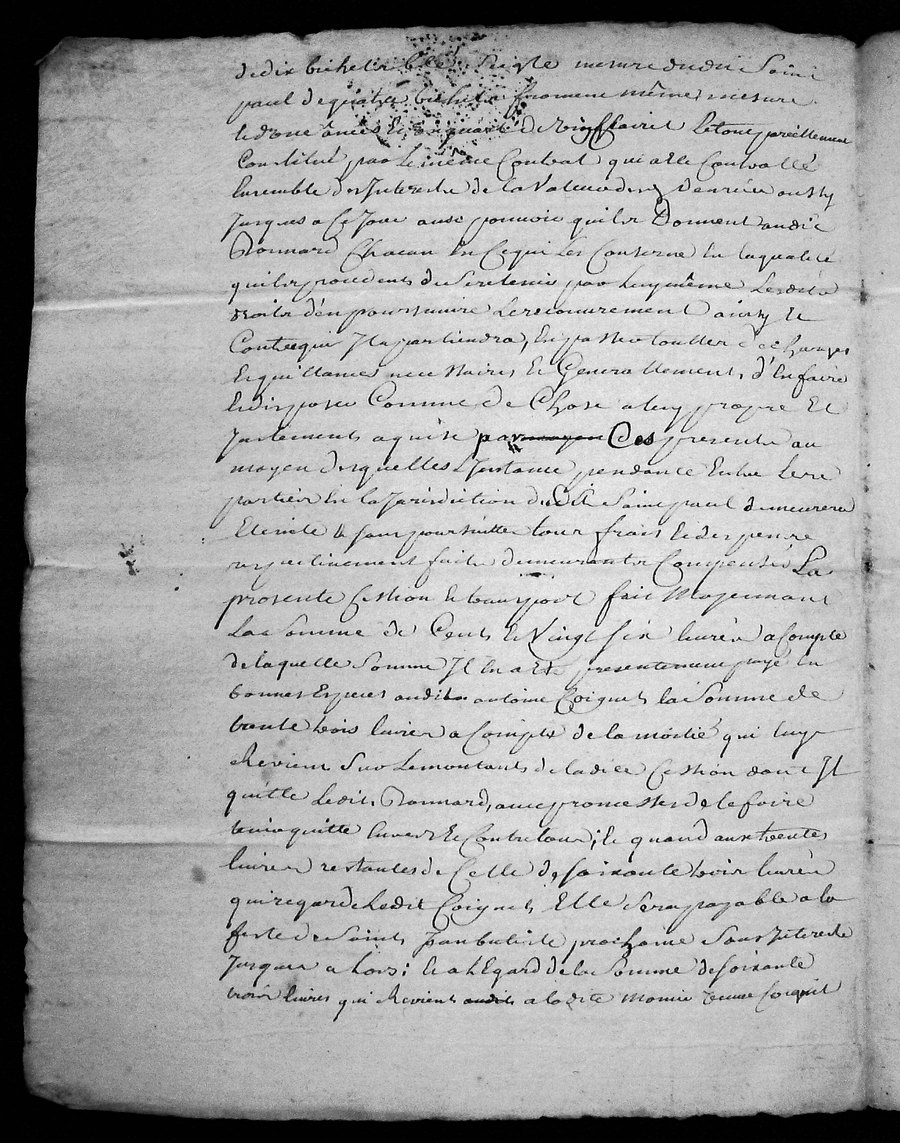 de dix bichets bled seigle mesure dudit Saint
paul de quatre bichets fromene même mesure
et d'une ânées de vin Clairet Le tout préellement
Constitué par le même Contrat qui a été Controllé
Ensemble des Interests de la Valeur des denrées aussy
Jusques a Ce Jour avec pouvoir qu'ils Donnent audit
Bonnard Chacun En Ce qui Les Conserne En la qualité
qu'ils procedents de Se retenir par luy même Lesdits
droits d'En poursuivre Le recouvrement ainsy Et
Contre qui Il apartiendra, En passer touttes décharges
Et quittances necessaires Et Generallements d'En faire
Et disposer Comme de Chose a luy propre Et
Justements aquise par Ces presente au
moyen desquelles L'Instance pendance Entre Les
parties En la Jurisdiction dudit Saint paul demeurera
Eteinte & sans poursuitte tous frais Et depense
respectivement faits demeurants Compensés La
presente Cession Et transport fait Moyennant
La Somme de Cents Et Vingt Six livres a Compte
de laquelle Somme Il En a Eté presentement payé En
bonnes Especes audit antoine Coignet la Somme de
trante trois livres a Compte de la moitié qui luy
Revient Sur Le montants de ladite Cession dont Il
quitte Ledit Bonnard, avec promesses de le faire
tenir quitte Envers Et Contre tous; Et quand aux trente
livres restantes de Celle de soixante trois livres
qui regarde Ledit Coignet Elle Sera payable a la
feste de Saints Jean batiste prochaine Sans Interests
Jusques a Lors; Et a L'Egard de la Somme de soixante
trois livres qui Revient a ladite Coignet